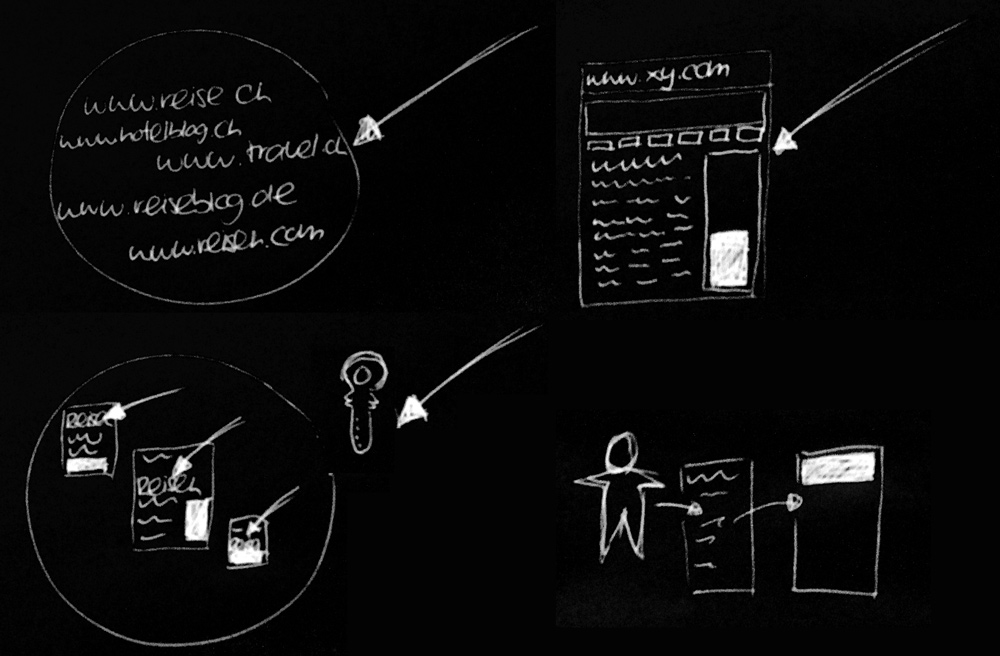 www.reise ch
www.hotelblog.ch
www.travel.ch
www.reiseblog.de
www.reisen.com
www.xy.com
Reise
Reisen